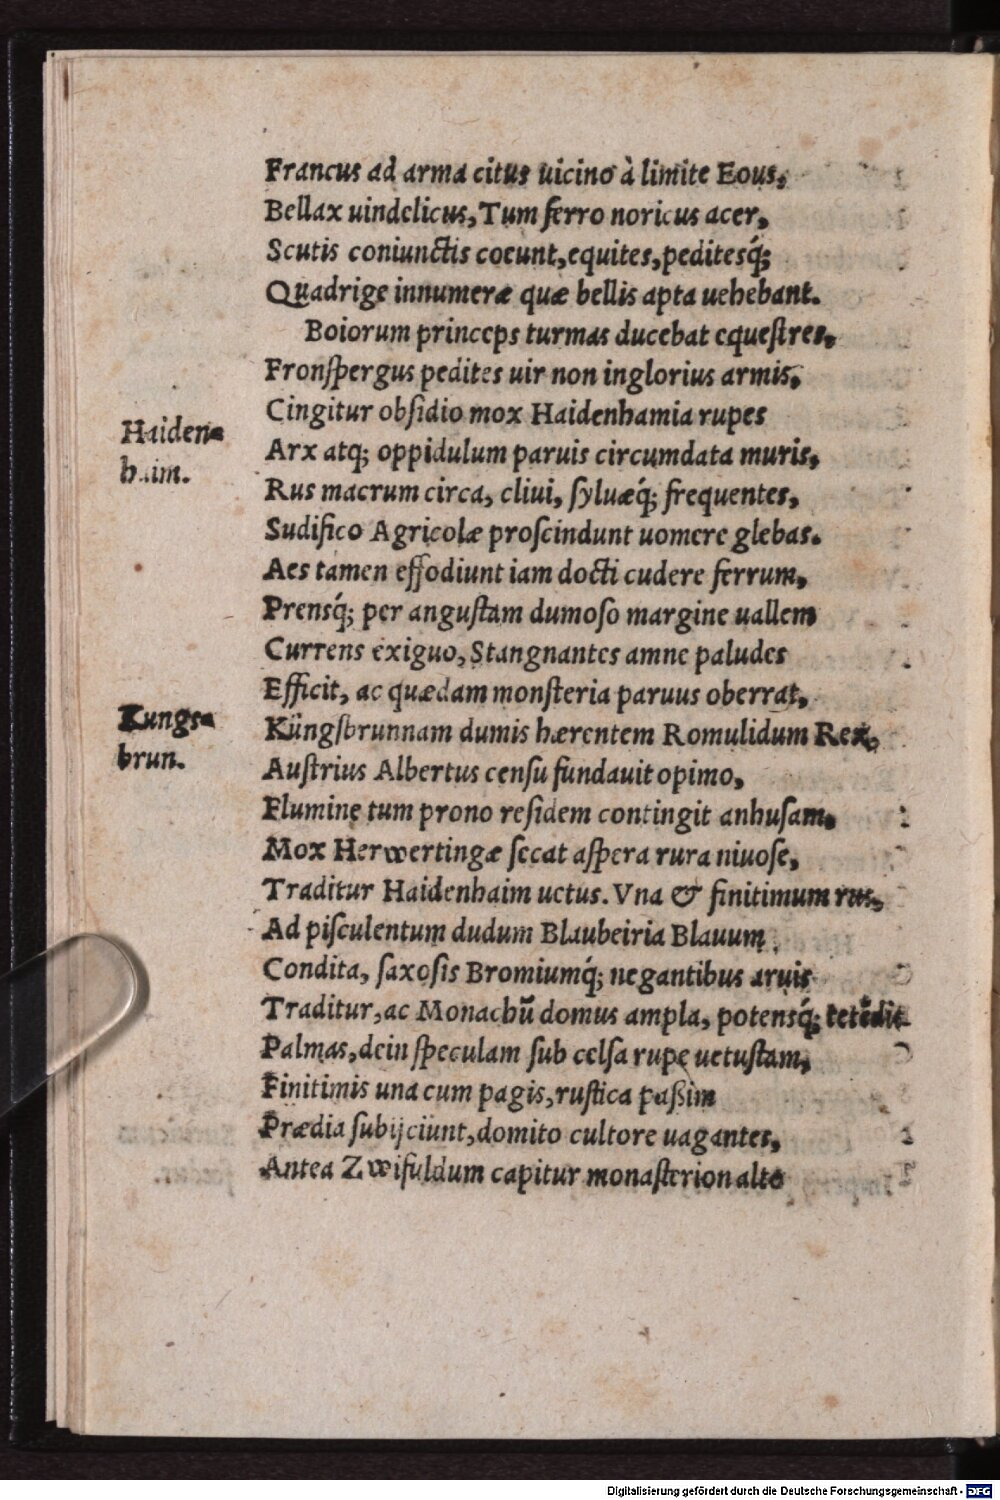 Francus ad arma citus uicino à limite Eous,
Bellax uindelicus, Tum ferro noricus acer,
Scutis coniunctis coeunt, equites, peditesq́;
Quadrige innumeræ quæ bellis apta uehebant.
Boiorum princeps turmas ducebat equeſtres,
Fronſpergus pedites uir non inglorius armis,
Cingitur obſidio mox Haidenhamia rupes
Haiden=
haim.
Arx atq; oppidulum paruis circumdata muris,
Rus macrum circa, cliui, ſyluæq́; frequentes,
Sudifico Agricolæ proſcindunt uomere glebas.
Aes tamen effodiunt iam docti cudere ferrum,
Prensq́; per anguſtam dumoſo margine uallem
Currens exiguo, Stangnantes amne paludes
Efficit, ac quædam monſteria paruus oberrat,
Kungs=
brun.
Küngſbrunnam dumis hærentem Romulidum Rex,
Auſtrius Albertus cenſu fundauit opimo,
Flumine tum prono reſidem contingit anhuſam,
Mox Herwertingæ ſecat aſpera rura niuoſe,
Traditur Haidenhaim uetus. Vna & finitimum rus,
Ad piſculentum dudum Blaubeiria Blauum
Condita, ſaxoſis Bromiumq́; negantibus aruis
Traditur, ac Monachũ domus ampla, potensq́; tetẽdit
Palmas, dein ſpeculam ſub celſa rupe uetuſtam,
Finitimis una cum pagis, ruſtica paßim
Prædia ſubijciunt, domito cultore uagantes,
Antea Zwifuldum capitur monaſterion alto
Digitalisierung gefördert durch die Deutsche Forschungsgemeinschaft - DFG